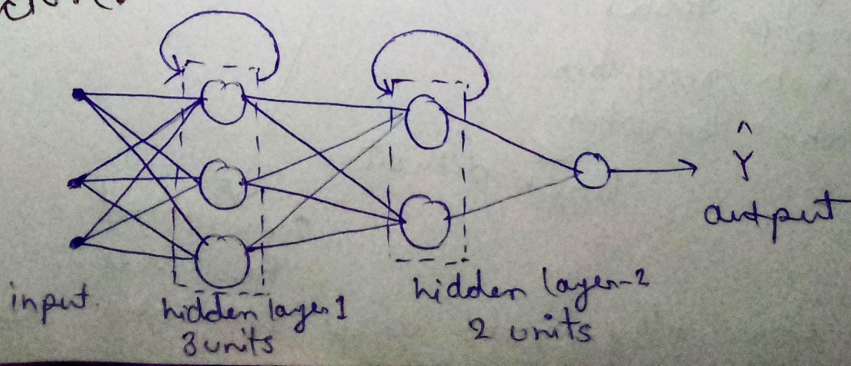 Ŷ
output
input.
hidden layer 1
3 units
hidden layer-2
2 units